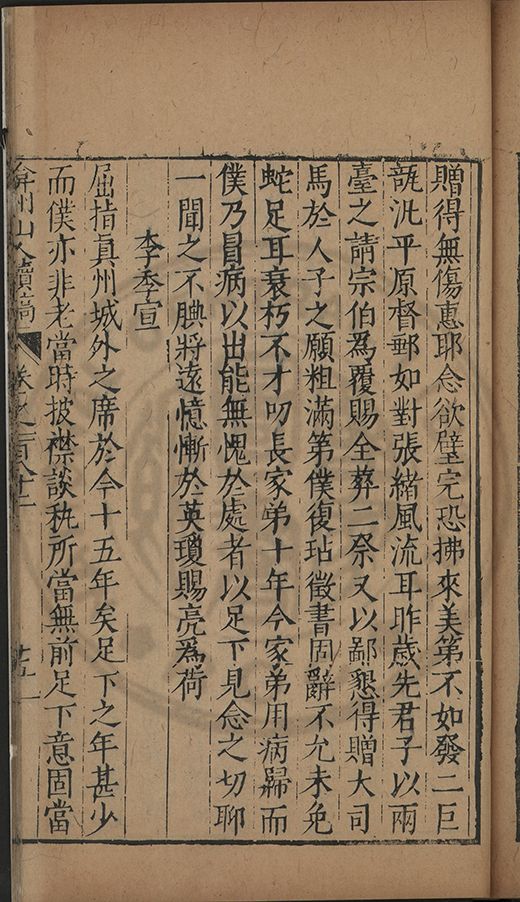 贈得無傷惠耶念欲璧完恐拂來美第不如發二巨
瓻沘平原督郵如對張緒風流耳昨歲先君子以兩
臺之請宗伯爲覆賜全葬二祭又以鄙懇得贈大司
馬於人子之願粗滿第僕復玷徵書固辭不允未免
蛇足耳衰朽不才叨長家弟十年今家弟用病歸而
僕乃冒病以出能無愧於處者以足下見念之切聊
一聞之不腆將遠憶慚於英瓊賜亮爲荷
李季宣
屈指真州城外之席於今十五年矣足下之年甚少
而僕亦非老當時披襟談秇所當無前足下意固當
弇州山人續稿 卷之一百八十二